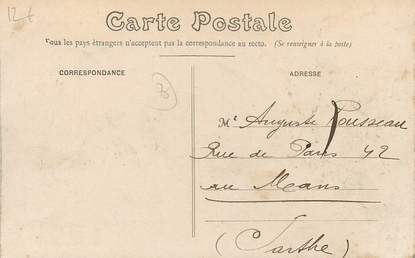 12 €
Carte Postale
Tous les pays étrangers n'acceptent pas la correspondance au recto. (Se renseigner à la poste)
CORRESPONDANCE
ADRESSE
75
Mr Auguste Rousseau
Rue de Paris 42
au Mans
(Sarthe)